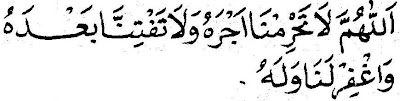 اَللّٰهُمَّ لَا تَحْرِمْنَا اَجْرَهُ وَلَا تَفْتِنَّا بَعْدَهُ
وَاغْفِرْ لَنَا وَلَهُ .